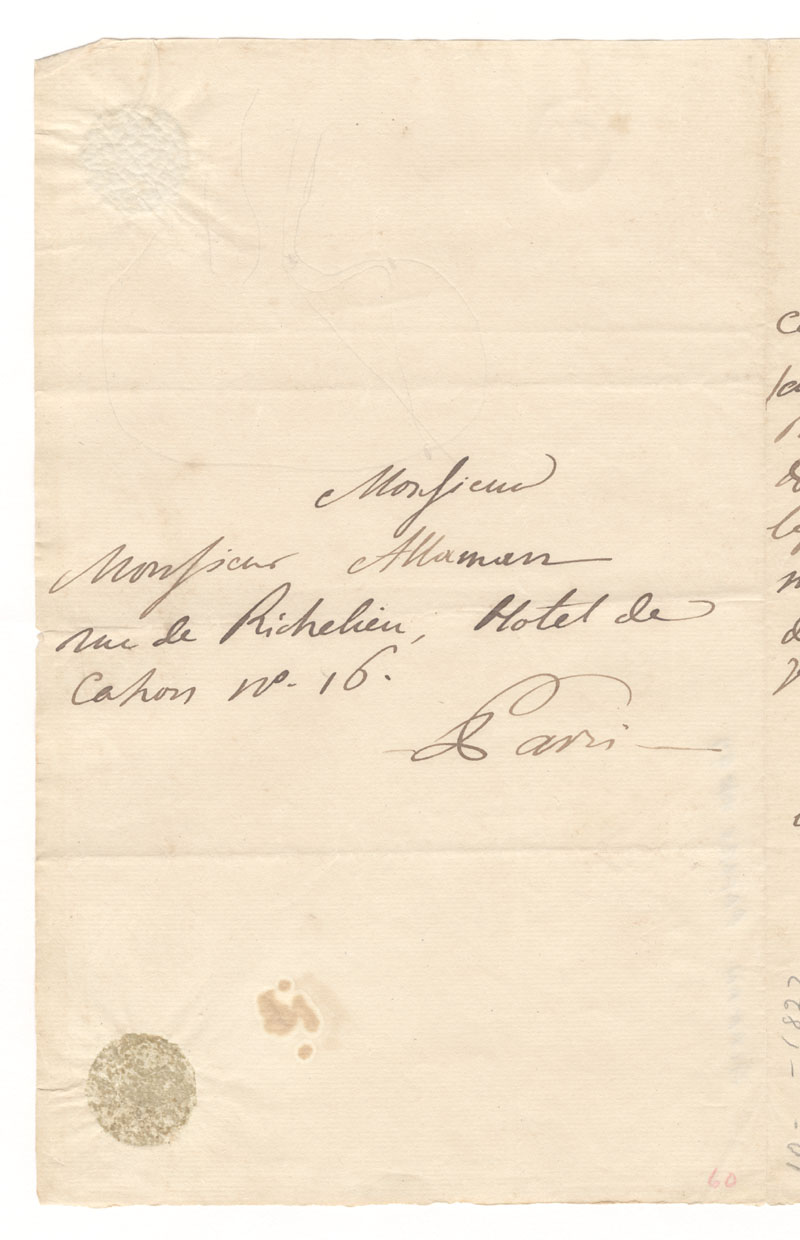 Monsieur
Monsieur Allaman
rue de Richelieu, Hotel de
Cahors no. 16.
à Paris
60